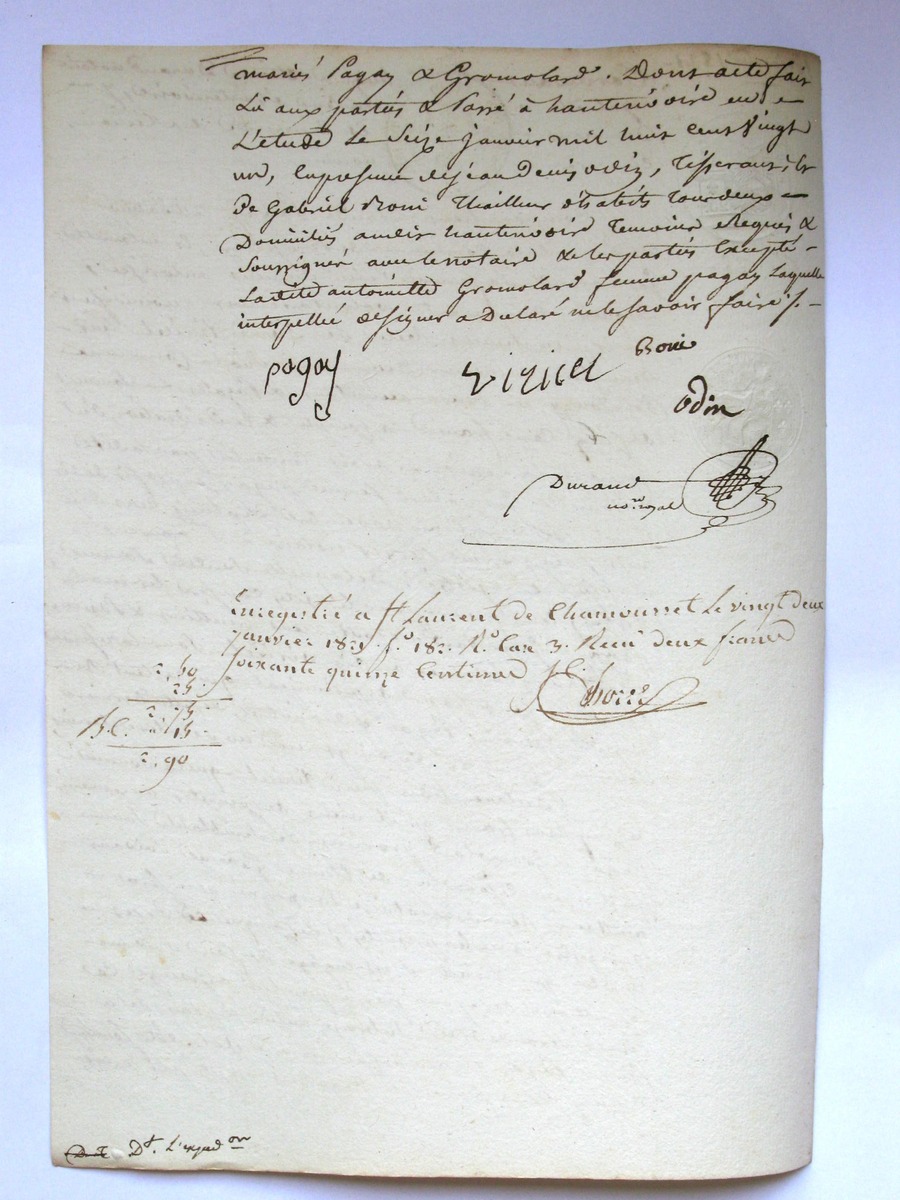 mariés Pagay & Gromolard. Dont acte fait
Lû aux parties & Passé à hauterivoire en
L'etude Le Seize janvier mil huit cent vingt
un, En presence de jean Denis odin, Tisserant, &
De Gabriel Boni Thailleur d'habits Tous deux
Domiciliés audit hauterivoire Temoins Requis &
Soussignés avec le notaire & les parties Excepté
Ladite antoinette Gromolard femme pagay Laquelle
interpellée de signer a Declaré ne le savoir faire ./.
pagay
Boni
odin
Durand
no.re royal
Enregistré a St Laurent de Chamousset Le vingt deux
janvier 1821 f.o 182. R.o Case 3. Recu deux francs
soixante quinze Centimes
2, 50
25.
2. 75
15.
2. 90
Dt. L'exped.on